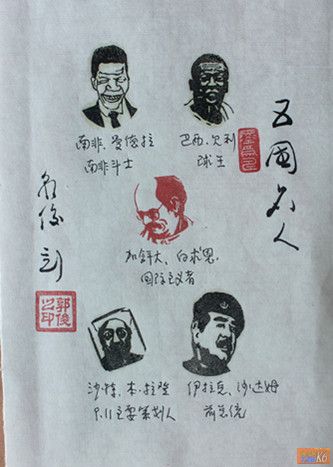 五国名人
南非、曼德拉
南非斗士
巴西、贝利
球王
加拿大、白求恩、
国际主义者
沙特、本·拉登
9.11主要策划人
伊拉克、沙达姆
前总统
郭俊
之印
K6